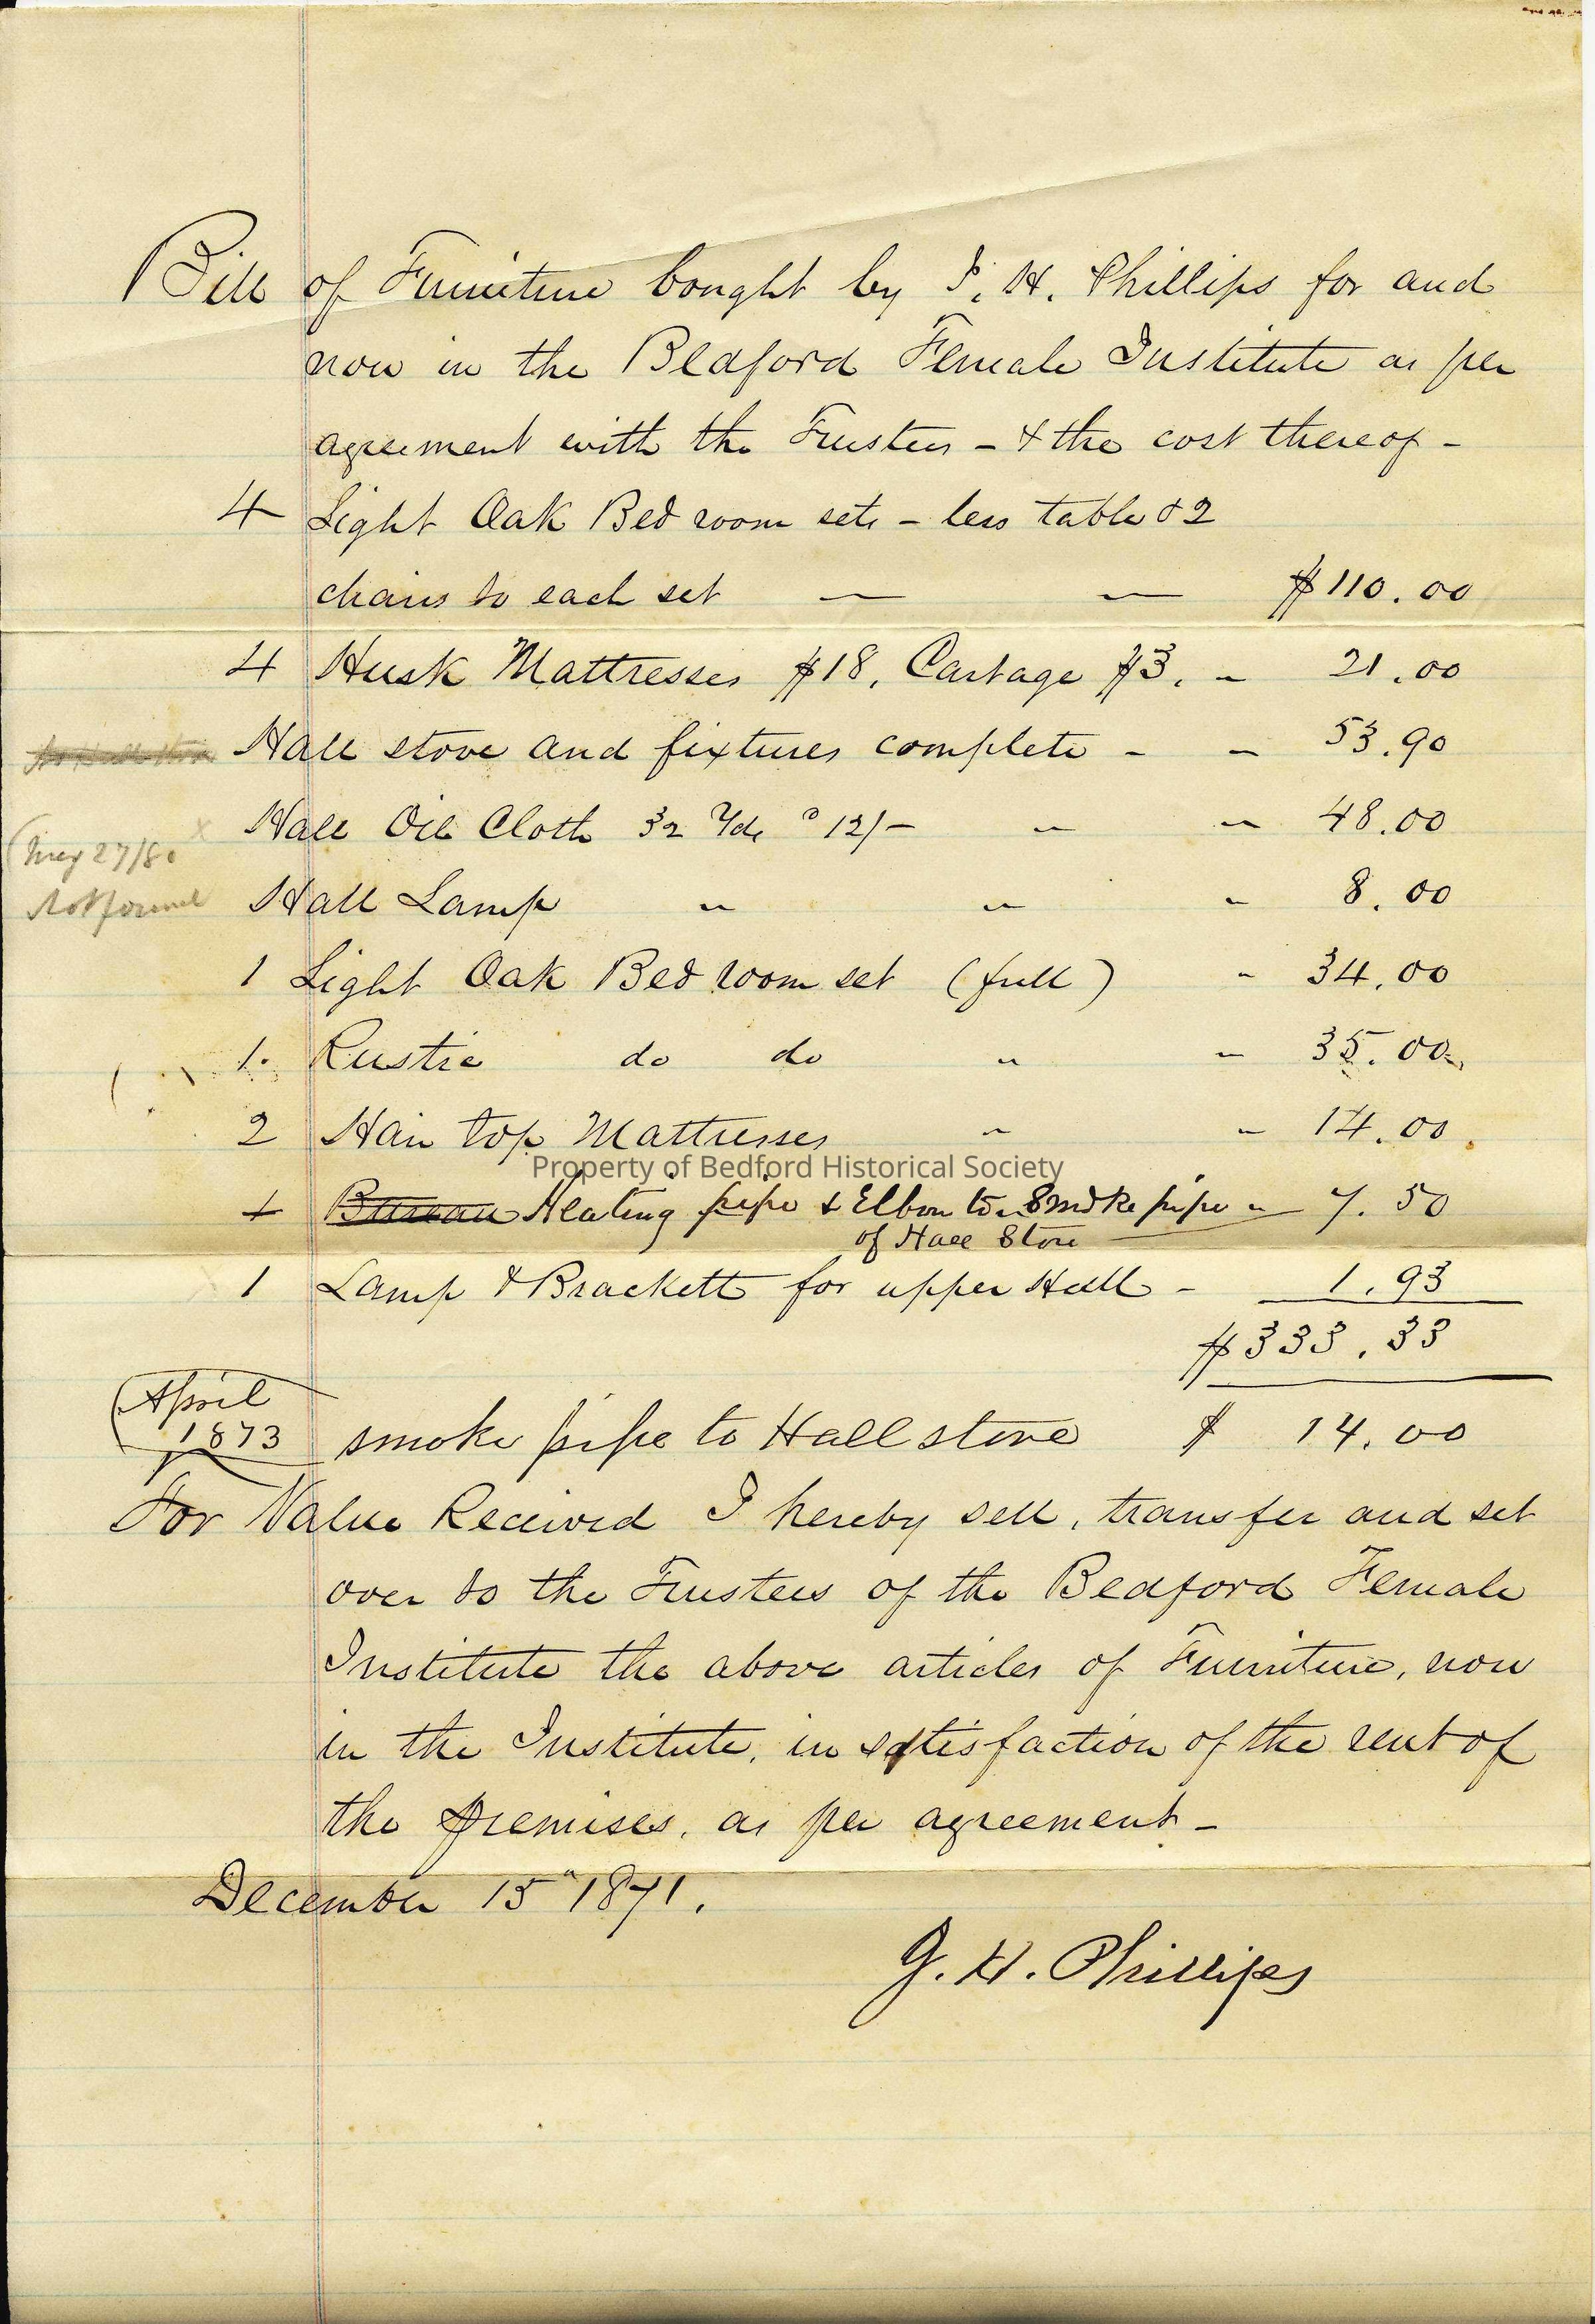 Bill of Furniture bought by J. H. Phillips for and
now in the Bedford Female Institute as per
agreement with the Trustees - & the cost thereof -
4 Light Oak Bed room sets - less table & 2
chairs to each set — — $110.00
4 Husk Mattresses $18, Cartage $3. - 21.00
Hall stove and fixtures complete - - 53.90
Hall Oil Cloth 32 Yds @ 12/- - - 48.00
May 27/80
Not found
Hall Lamp " " - 8.00
1 Light Oak Bed room set (full) - 34.00
1. Rustic do do " - 35.00
2 Hair top Mattresses " - 14.00
Property of Bedford Historical Society
Bureau Heating pipe & Elbow to Smoke pipe - 7.50
of Hall Stove
1 Lamp & Brackett for upper Hall - 1.93
$333.33
April
1873 smoke pipe to Hall stove $ 14.00
For Value Received I hereby sell, transfer and set
over to the Trustees of the Bedford Female
Institute the above articles of Furniture, now
in the Institute, in satisfaction of the rent of
the premises, as per agreement -
December 15" 1871.
J. H. Phillips